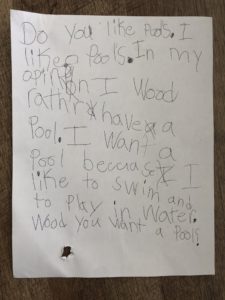 Do you like Pools. I
like a Pools. In my
opinion I Wood
rathr have a
Pool. I Want a
Pool beccase I
like to swim and
to Play in Water.
Wood you Want a Pools.